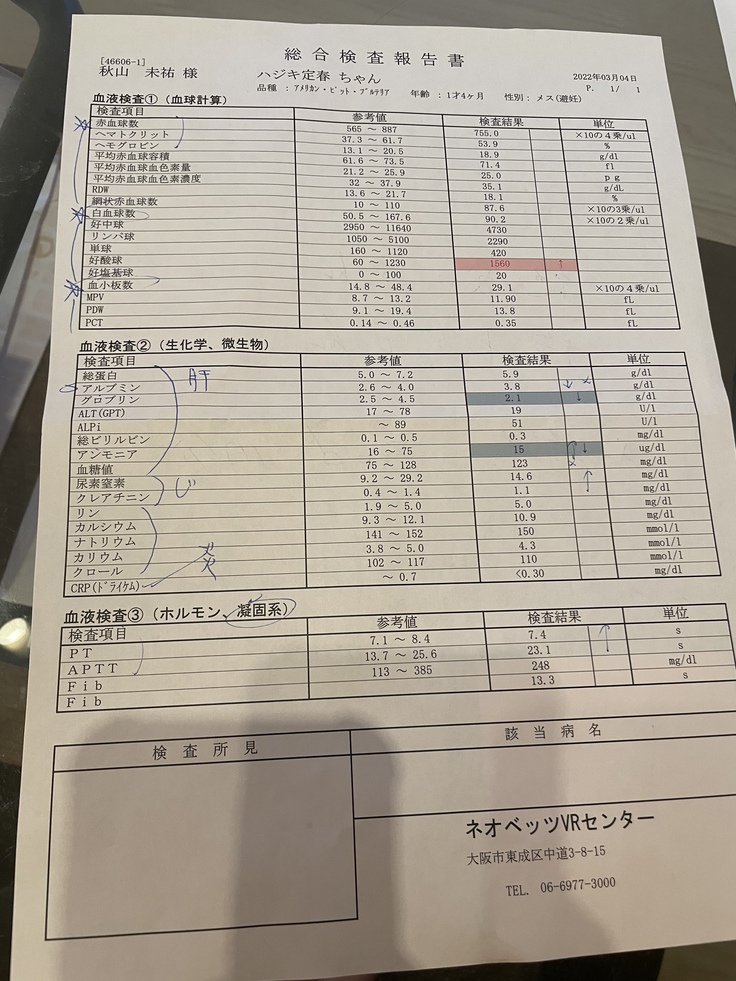 総合検査報告書
[46606-1]
秋山 未祐 様 ハジキ定春 ちゃん 2022年03月04日
品種 : アメリカン・ピット・ブルテリア 年齢 : 1才4ヶ月 性別 : メス(避妊) P. 1/ 1
血液検査① (血球計算)
検査項目 参考値 検査結果 単位
赤血球数 565 ～ 887 755.0 ×10の4乗/ul
ヘマトクリット 37.3 ～ 61.7 53.9 %
ヘモグロビン 13.1 ～ 20.5 18.9 g/dl
平均赤血球容積 61.6 ～ 73.5 71.4 fl
平均赤血球血色素量 21.2 ～ 25.9 25.0 pg
平均赤血球血色素濃度 32 ～ 37.9 35.1 g/dL
RDW 13.6 ～ 21.7 18.1 %
網状赤血球数 10 ～ 110 87.6 ×10の3乗/ul
白血球数 50.5 ～ 167.6 90.2 ×10の2乗/ul
好中球 2950 ～ 11640 4730
リンパ球 1050 ～ 5100 2290
単球 160 ～ 1120 420
好酸球 60 ～ 1230 1560 ↑
好塩基球 0 ～ 100 20
血小板数 14.8 ～ 48.4 29.1 ×10の4乗/ul
MPV 8.7 ～ 13.2 11.90 fL
PDW 9.1 ～ 19.4 13.8 fL
PCT 0.14 ～ 0.46 0.35 fL
血液検査② (生化学、微生物)
検査項目 参考値 検査結果 単位
総蛋白 5.0 ～ 7.2 5.9 g/dl
アルブミン 肝 2.6 ～ 4.0 3.8 ↓ g/dl
グロブリン 2.5 ～ 4.5 2.1 ↓ g/dl
ALT(GPT) 17 ～ 78 19 U/l
ALPi ～ 89 51 U/l
総ビリルビン 0.1 ～ 0.5 0.3 mg/dl
アンモニア 16 ～ 75 15 ↓ ug/dl
血糖値 75 ～ 128 123 mg/dl
尿素窒素 じ 9.2 ～ 29.2 14.6 ↑ mg/dl
クレアチニン 0.4 ～ 1.4 1.1 mg/dl
リン 1.9 ～ 5.0 5.0 mg/dl
カルシウム 9.3 ～ 12.1 10.9 mg/dl
ナトリウム 141 ～ 152 150 mmol/l
カリウム 3.8 ～ 5.0 4.3 mmol/l
クロール 炎 102 ～ 117 110 mmol/l
CRP(ドライケム) ～ 0.7 <0.30 mg/dl
血液検査③ (ホルモン、凝固系)
検査項目 参考値 検査結果 単位
PT 7.1 ～ 8.4 7.4 ↑ s
APTT 13.7 ～ 25.6 23.1 s
Fib 113 ～ 385 248 mg/dl
Fib 13.3 s
検査所見 該当病名
ネオベッツVRセンター
大阪市東成区中道3-8-15
TEL. 06-6977-3000